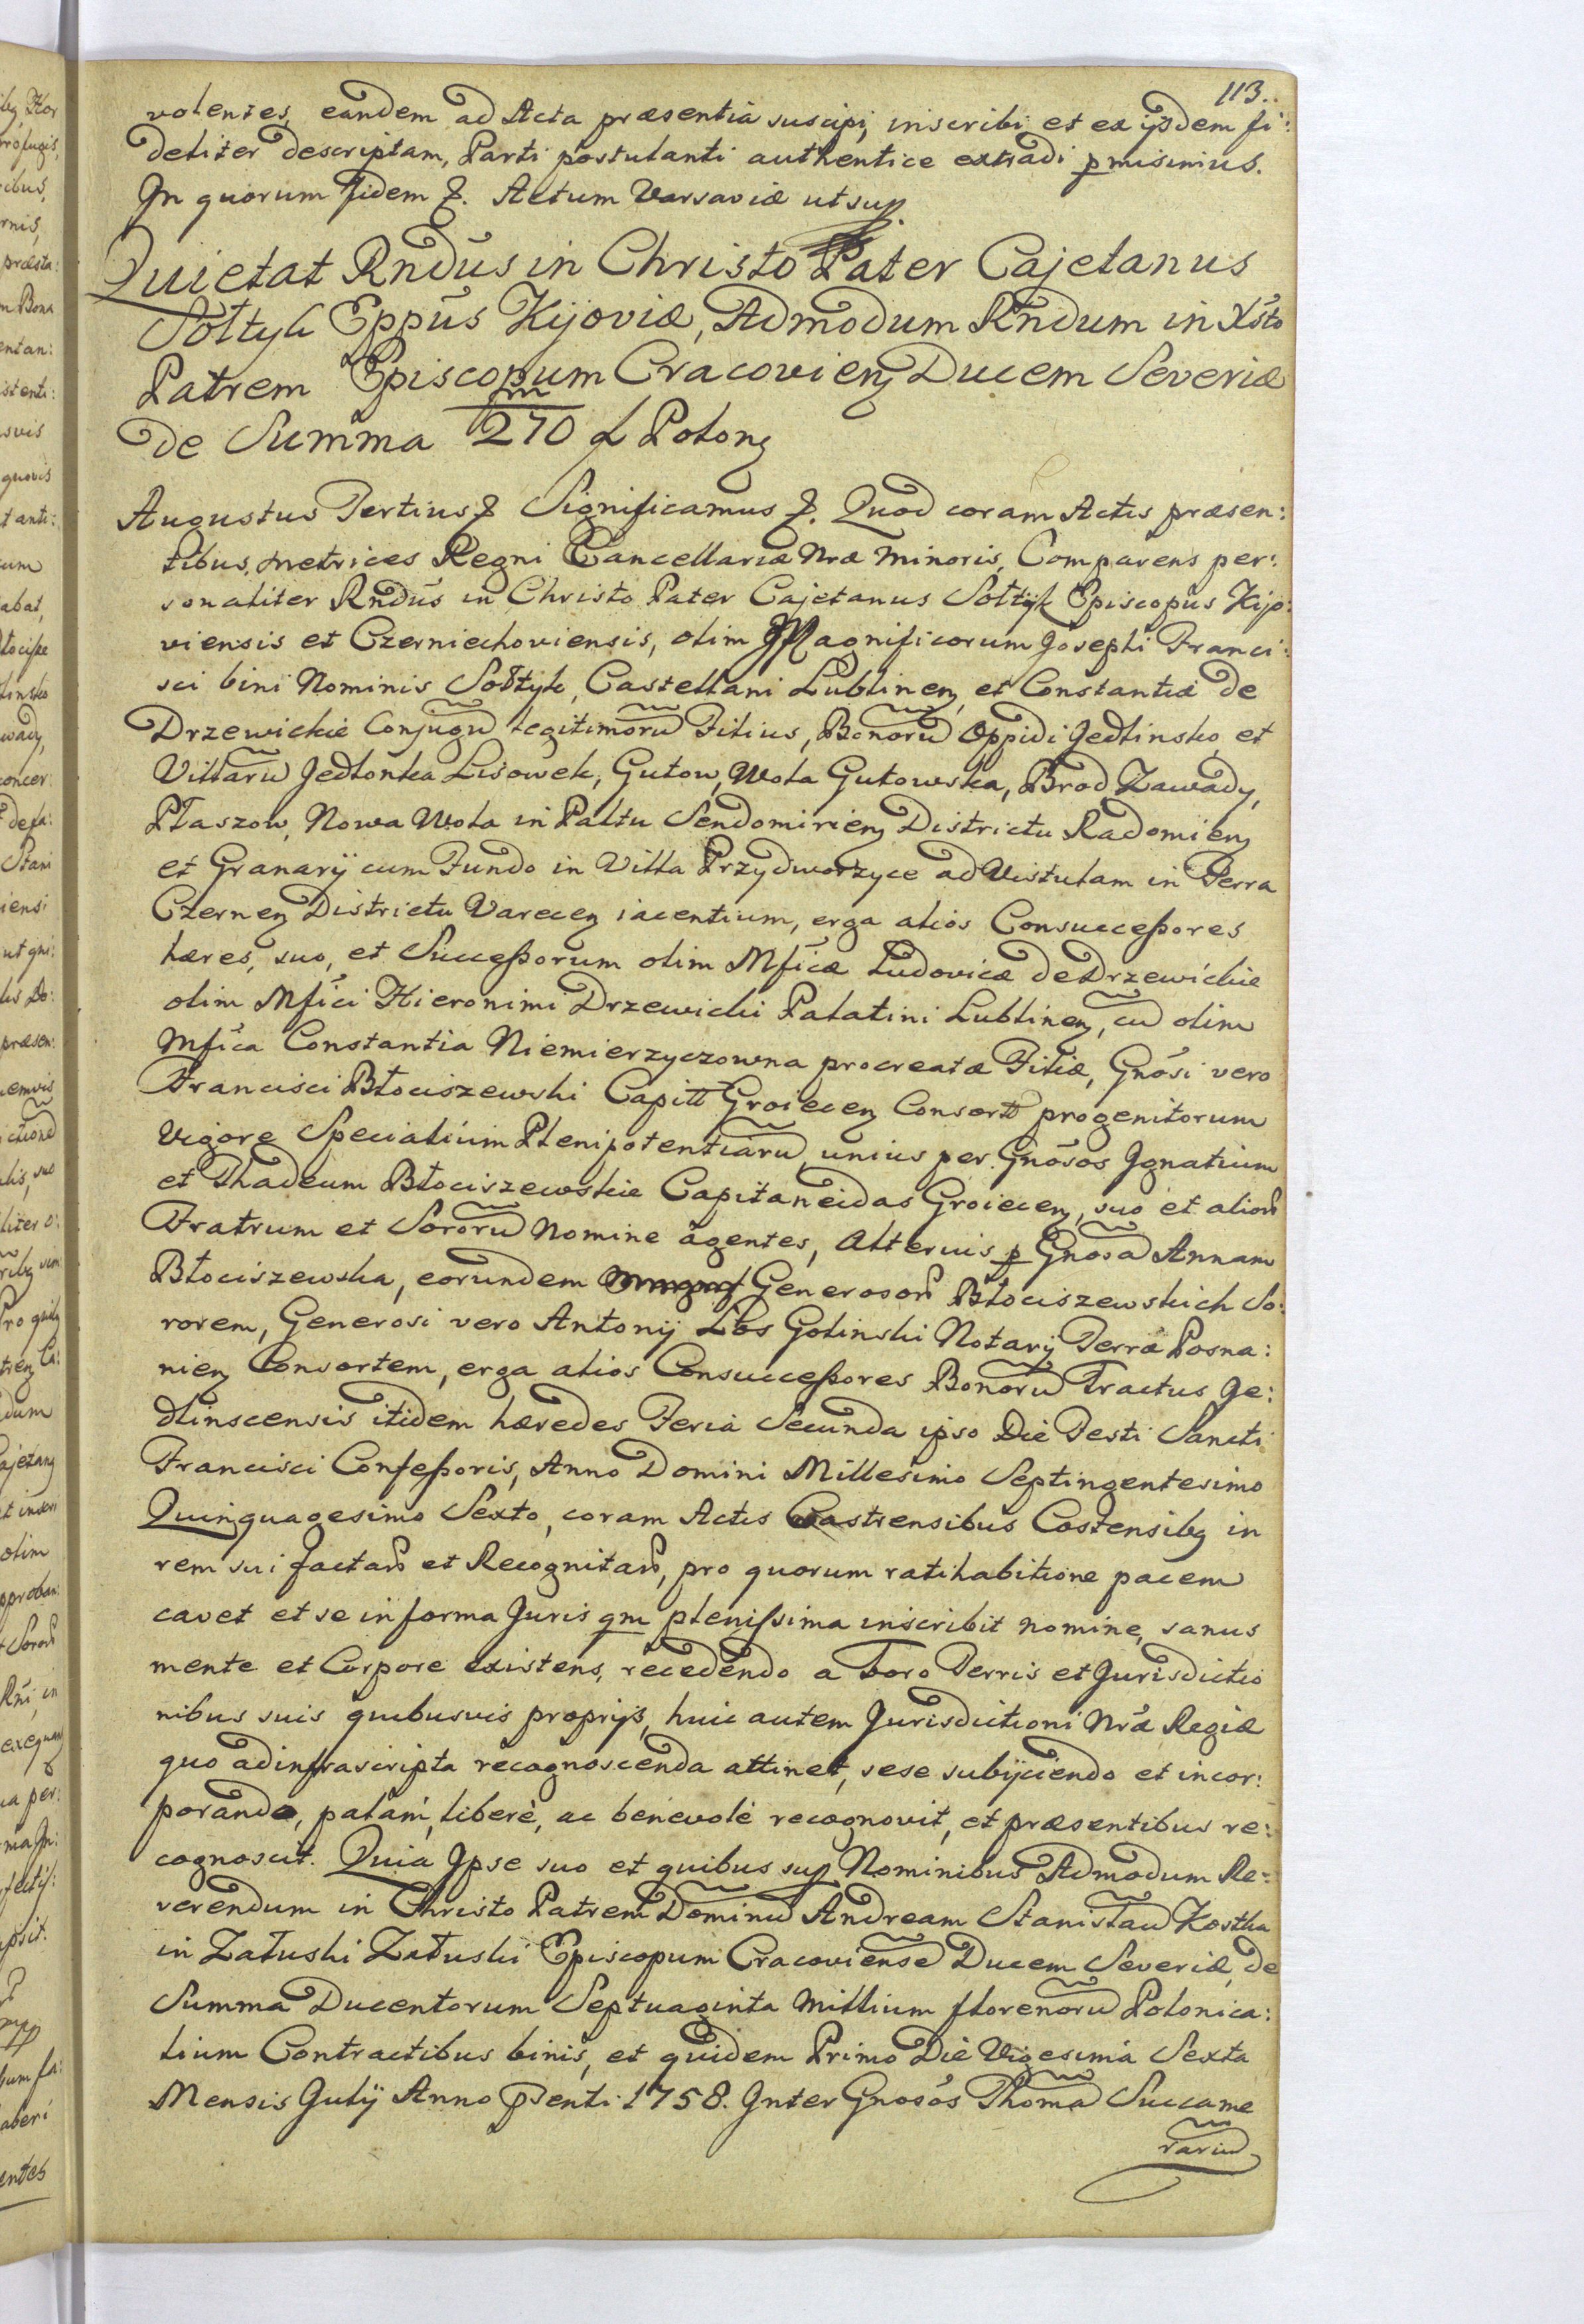 113.
volentes, eandem ad Acta præsentia suscipi, inscribi et ex ijsdem fi:
deliter descriptam, Parti postulanti authentice extradi pmisimus.
In quorum fidem &. Actum Varsaviæ ut sup.
Quietat Rndus in Christo Pater Cajetanus
Sołtyk Eppus Kijoviæ, Admodum Rndum in Xsto
Patrem Episcopum Cracovien Ducem Severiæ
de Summa 270 m f Polon
Augustus Tertius & Significamus &. Quod coram Actis præsen:
tibus, metrices Regni Cancellariæ Nræ Minoris, Comparens per:
sonaliter Rndus in Christo Pater Cajetanus Sołtyk Episcopus Kijo:
viensis et Czerniechoviensis, olim Magnificorum Josephi Franci:
sci bini Nominis Sołtyk, Castellani Lublinen, et Constantiæ de
Drzewickie Conjugu legitimoru Filius, Bonoru Oppidi Jedlinsko, et
Villaru Jedlonka Lisowek, Gutow, Wola Gutowska, Brod Zawady,
Płaszow, Nowa Wola in Paltu Sendomirien Districtu Radomien
et Granarij cum Fundo in Villa Przydworzyce ad Vistulam in Terra
Czernen Districtu Varecen iacentium, erga alios Consuccessores
hæres, suo, et Successorum olim Mficæ Ludovicæ de Drzewickie
olim Mfici Hieronimi Drzewicki Palatini Lublinen, cu olim
Mfica Constantia Niemierzyczowna procreatæ Filiæ, Gnosi vero
Francisci Błociszewski Capitt Groiecen Consort progenitorum
Vigore Specialium Plenipotentiaru, unius per Gnosos Ignatium
et Thadeum Błociszewskie Capitaneidas Groiecen, suo et alior
Fratrum et Sororu Nomine agentes, Alterius p Gnosa Annam
Błociszewska, eorundem Generosor Błociszewskich So:
rorem, Generosi vero Antonij Łos Golinski Notarij Terræ Posna:
nien Consortem, erga alios Consuccessores Bonoru Tractus Je:
dlinscensis itidem hæredes Feria Secunda ipso Die Festi Sancti
Francisci Confessoris, Anno Domini Millesimo Septingentesimo
Quinquagesimo Sexto, coram Actis Castrensibus Costensib in
rem sui factar et Recognitar, pro quorum ratihabitione pacem
cavet et se in forma Juris qm plenissima inscribit nomine, sanus
mente et Corpore existens, recedendo a Foro Terris et Jurisdictio
nibus suis quibusvis proprijs, huic autem Jurisdictioni Nræ Regiæ
quo ad infrascripta recognoscenda attinet, sese subijciendo et incor:
porando, palam, liberè, ac benevolè recognovit, et præsentibus re:
cognoscit. Quia Ipse suo et quibus sup Nominibus Admodum Re-
verendum in Christo Patrem Dominu Andream Stanisłau Kostka
in Załuski Załuski Episcopum Cracoviense Ducem Severiæ, de
Summa Ducentorum Septuaginta Millium florenoru Polonica:
lium Contractibus binis, et quidem Primo Die Vigesima Sexta
Mensis Julij Anno psenti 1758. Inter Gnosos Thoma Succame
rariu